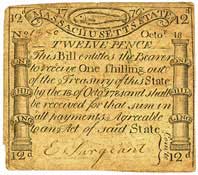 12 17 76 12
MASSACHUSETTS STATE
No Octor 18
TWELVE PENCE
This Bill entitles the Bearer
to receive One Shilling out
of the Treasury of this State
by the 18 of Octr and shall
be received for that sum in
all payments Agreeable
to an Act of said State
E Sargeant
12d 12d